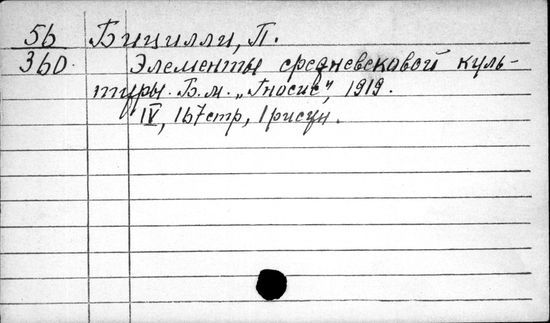 56 Бицилли, П.
360. Элементы средневековой куль-
туры. Б.м. „Гносис", 1919.
IV, 167 стр, 1 рисун.